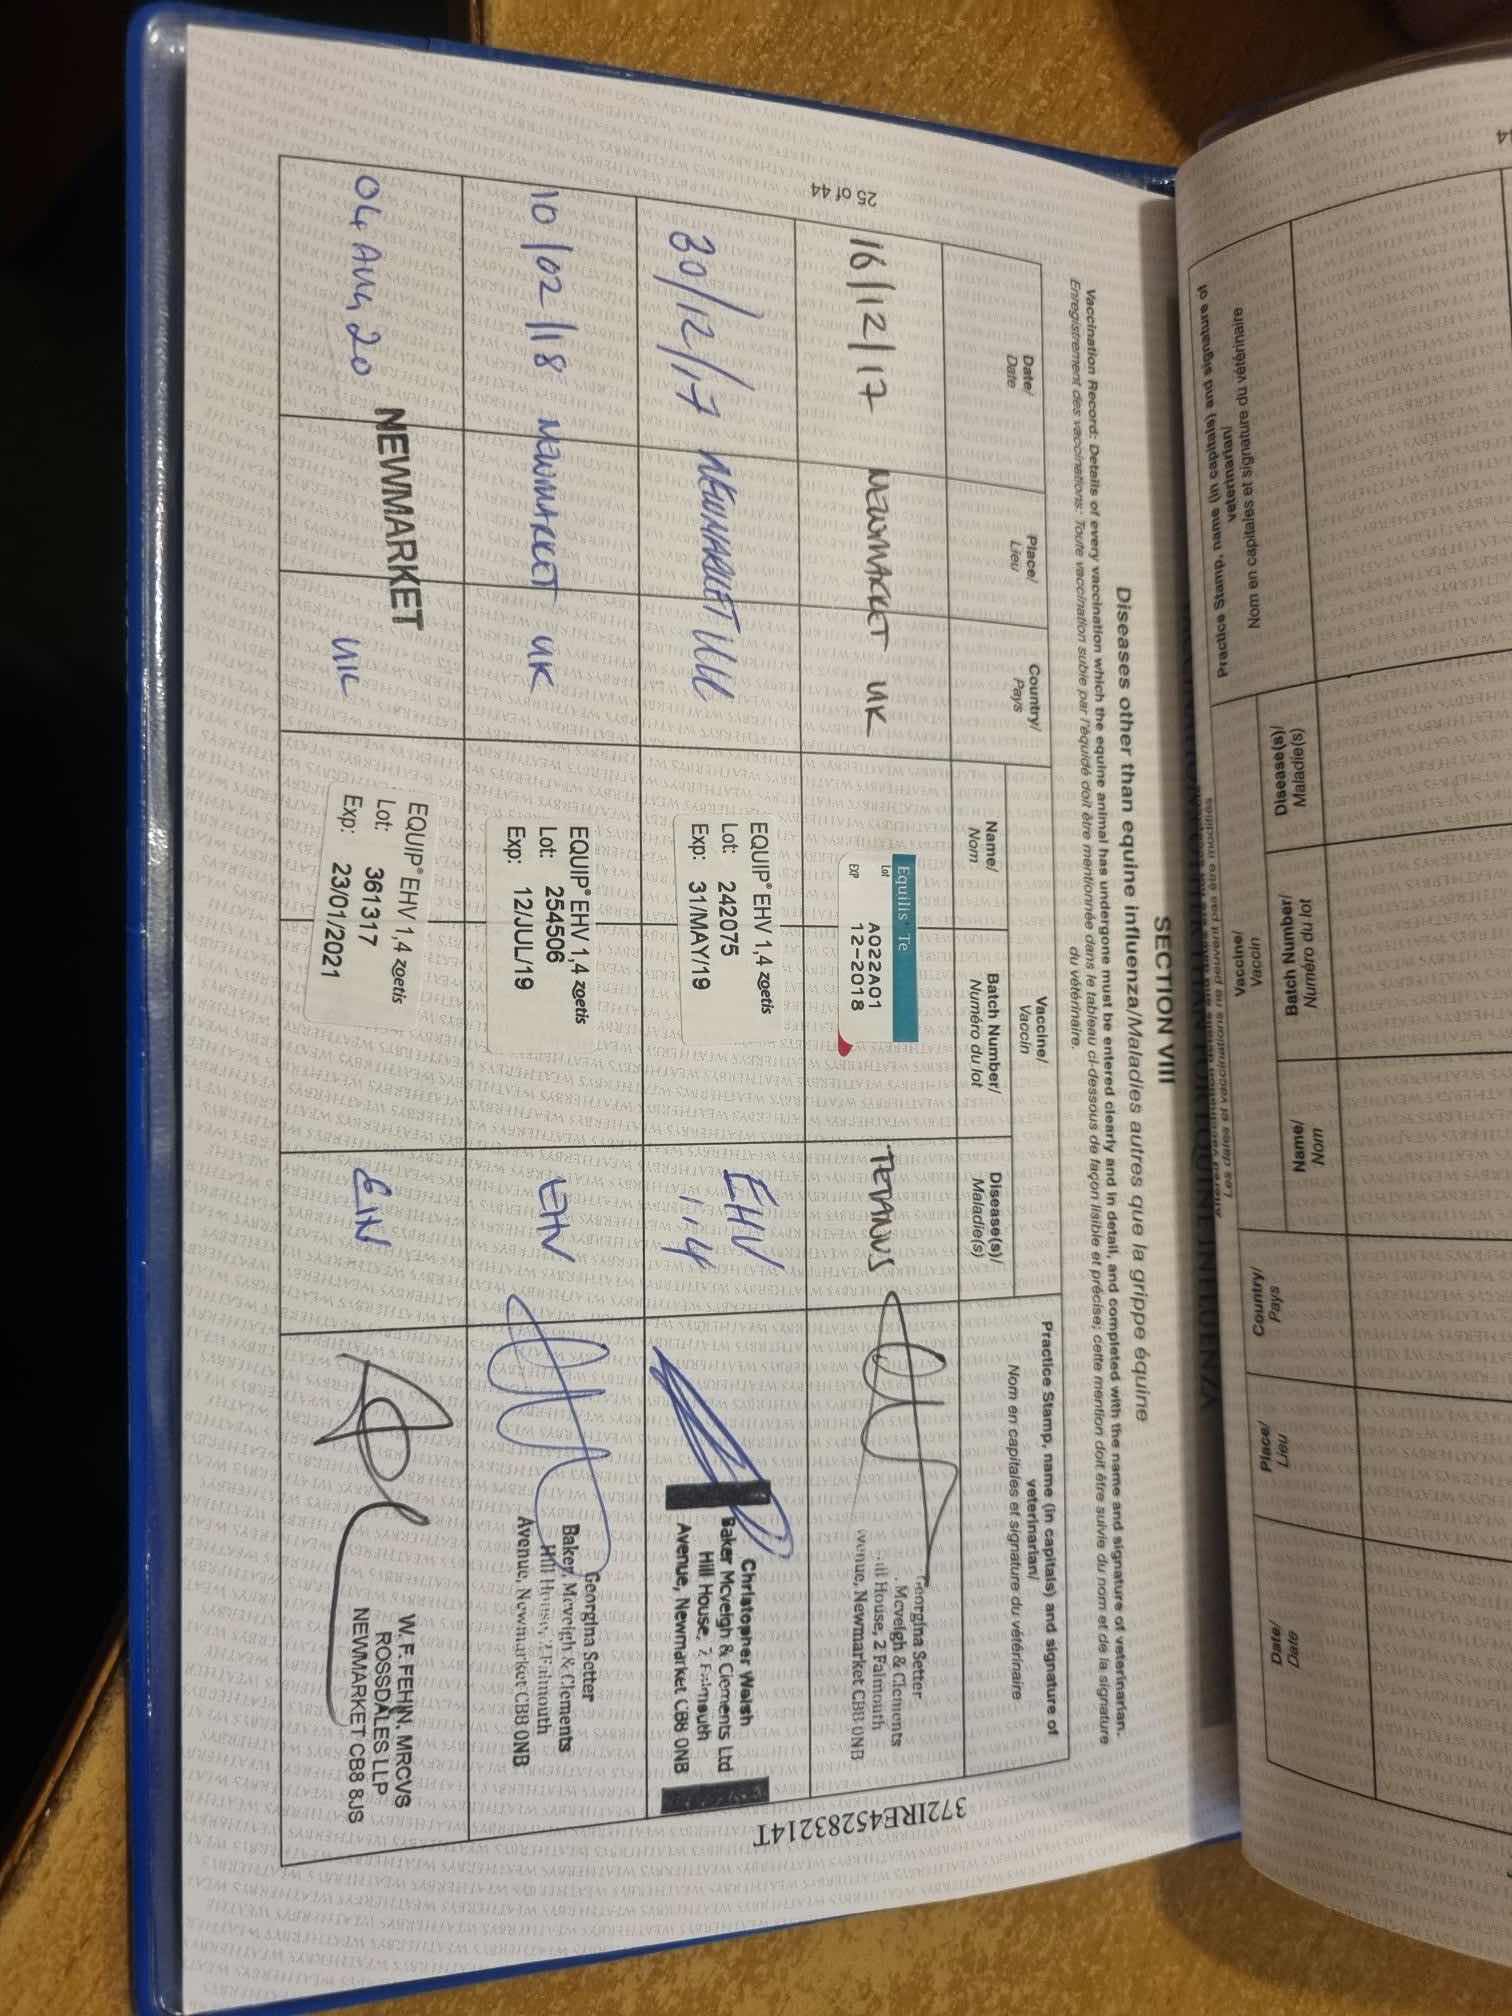 25 of 44
SECTION VIII
Diseases other than equine influenza/Maladies autres que la grippe équine
Vaccination Record: Details of every vaccination which the equine animal has undergone must be entered clearly and in detail, and completed with the name and signature of veterinarian.
Enregistrement des vaccinations: Toute vaccination subie par l'équidé doit être mentionnée dans le tableau ci-dessous de façon lisible et précise; cette mention doit être suivie du nom et de la signature
du vétérinaire.
Date/
Date
Place/
Lieu
Country/
Pays
Vaccine/
Vaccin
Name/
Nom
Batch Number/
Numéro du lot
Disease(s)/
Maladie(s)
Practice Stamp, name (in capitals) and signature of
veterinarian/
Nom en capitales et signature du vétérinaire
16/12/17 NEWMARKET UK
Equilis Te
Lot A022A01
EXP 12-2018
TETANUS
Georgina Setter
Mcveigh & Clements
Hill House, 2 Falmouth
Avenue, Newmarket CB8 0NB
30/12/17 NEWMARKET UK
EQUIP® EHV 1,4 zoetis
Lot: 242075
Exp: 31/MAY/19
EHV
1,4
Christopher Walsh
Baker Mcveigh & Clements Ltd
Hill House, 2 Falmouth
Avenue, Newmarket CB8 0NB
10/02/18 NEWMARKET UK
EQUIP® EHV 1,4 zoetis
Lot: 254506
Exp: 12/JUL/19
EHV
Georgina Setter
Baker, Mcveigh & Clements
Hill House, 2 Falmouth
Avenue, Newmarket CB8 0NB
04 AUG 20 NEWMARKET UK
EQUIP® EHV 1,4 zoetis
Lot: 361317
Exp: 23/01/2021
EHV
W. F. FEHIN. MRCVS
ROSSDALES LLP
NEWMARKET CB8 8JS
372IRE45283214T
Date/
Date
Place/
Lieu
Country/
Pays
Vaccine/
Vaccin
Name/
Nom
Batch Number/
Numéro du lot
Disease(s)/
Maladie(s)
Practice Stamp, name (in capitals) and signature of
veterinarian/
Nom en capitales et signature du vétérinaire